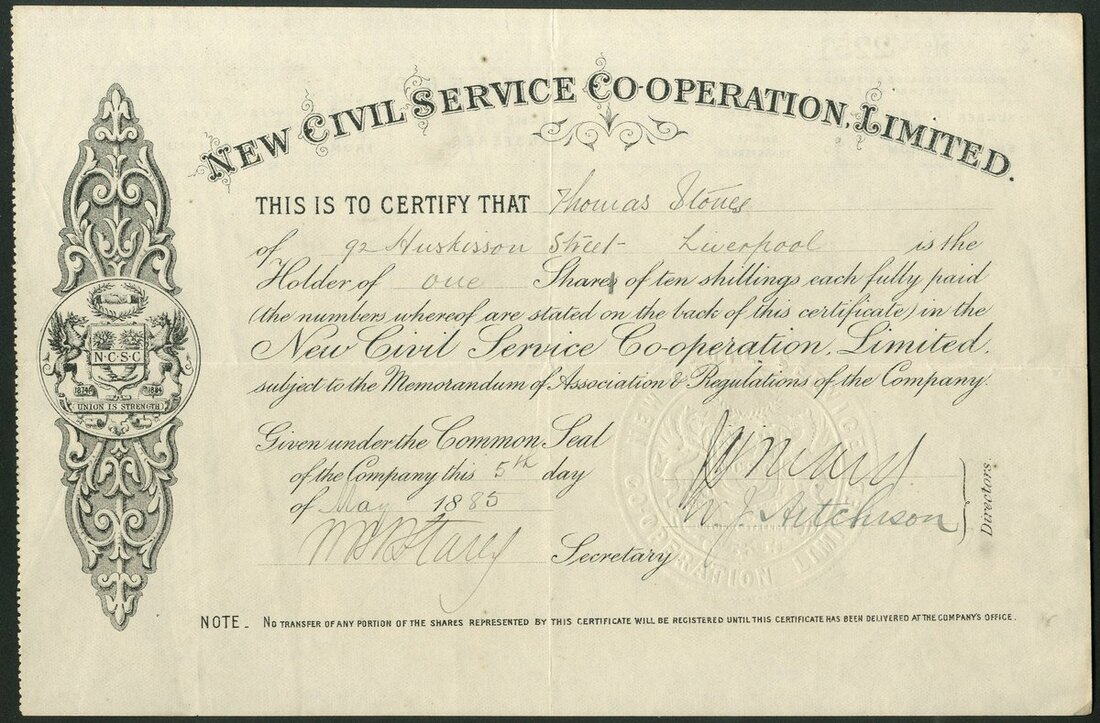 NEW CIVIL SERVICE CO-OPERATION, LIMITED.
THIS IS TO CERTIFY THAT Thomas Stones
of 92 Huskisson Street Liverpool is the
Holder of one Share of ten shillings each fully paid
(the numbers whereof are stated on the back of this certificate) in the
New Civil Service Co-operation, Limited,
subject to the Memorandum of Association & Regulations of the Company.
N·C·S·C
UNION IS STRENGTH
Given under the Common Seal
of the Company this 5th day
of May 1885
Aitchison
Directors.
Secretary
NEW CO-OPERATION LIMITED
NOTE_ NO TRANSFER OF ANY PORTION OF THE SHARES REPRESENTED BY THIS CERTIFICATE WILL BE REGISTERED UNTIL THIS CERTIFICATE HAS BEEN DELIVERED AT THE COMPANY'S OFFICE.